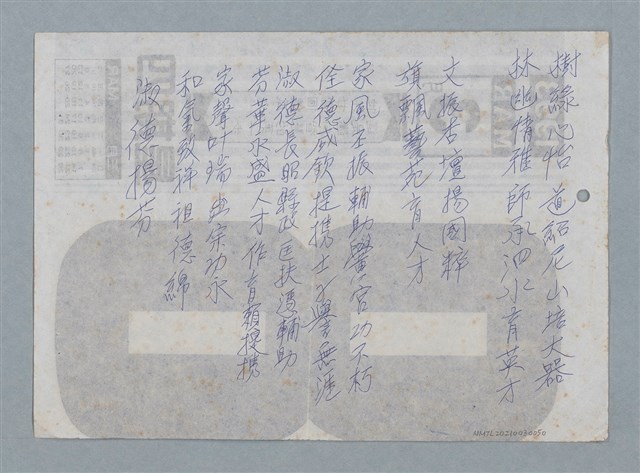 樹綠心怡 道紹尼山培大器
林幽情雅 師承泗水育英才
文振杏壇揚國粹
旗飄藝苑育人才
家風丕振輔助黌宮功不朽
侄德咸欽提携士子譽無涯
淑德長昭縣政匡扶憑輔助
芳華永盛人才作育賴提携
家聲叶瑞 宗功永
和氣致祥祖德綿
淑德揚芳
NMTL20210030050